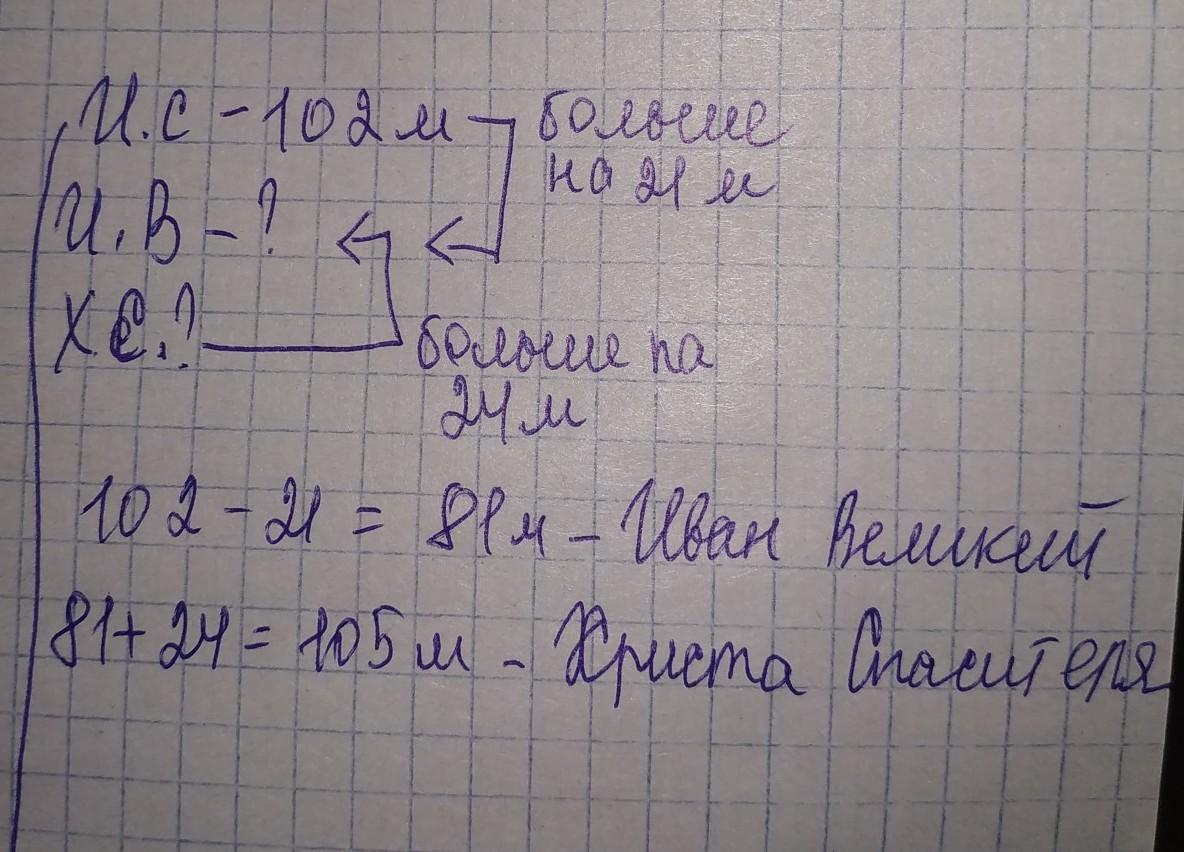 И.С - 102 м больше
на 21 м
И.В - ?
Х.С.? больше на
24 м
102 - 21 = 81 м - Иван Великий
81 + 24 = 105 м - Христа Спасителя